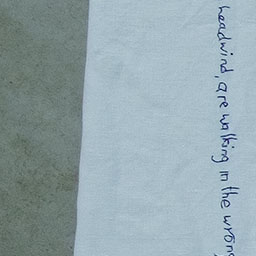 headwind, are walking in the wrong